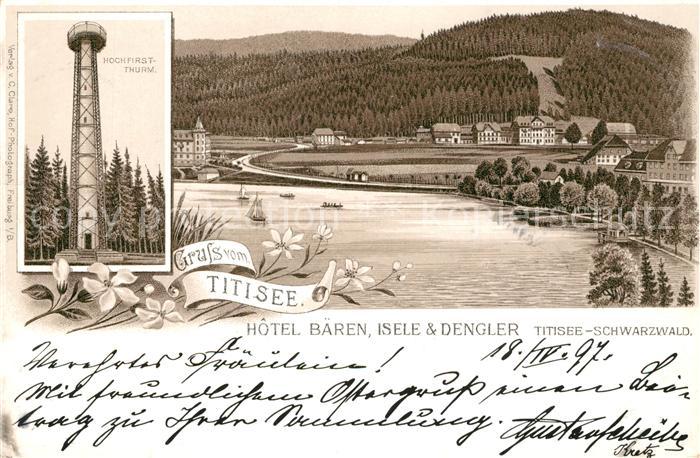 HOCHFIRST-
THURM.
Verlag v. C. Clare, Hof-Photograph, Freiburg i/B.
Gruss vom
TITISEE.
HÔTEL BÄREN, ISELE & DENGLER TITISEE-SCHWARZWALD.
18./IV. 97.
Verehrtes Fräulein!
Mit freundlichem Ostergruß einen Bei-
trag zu Ihrer Sammlung.